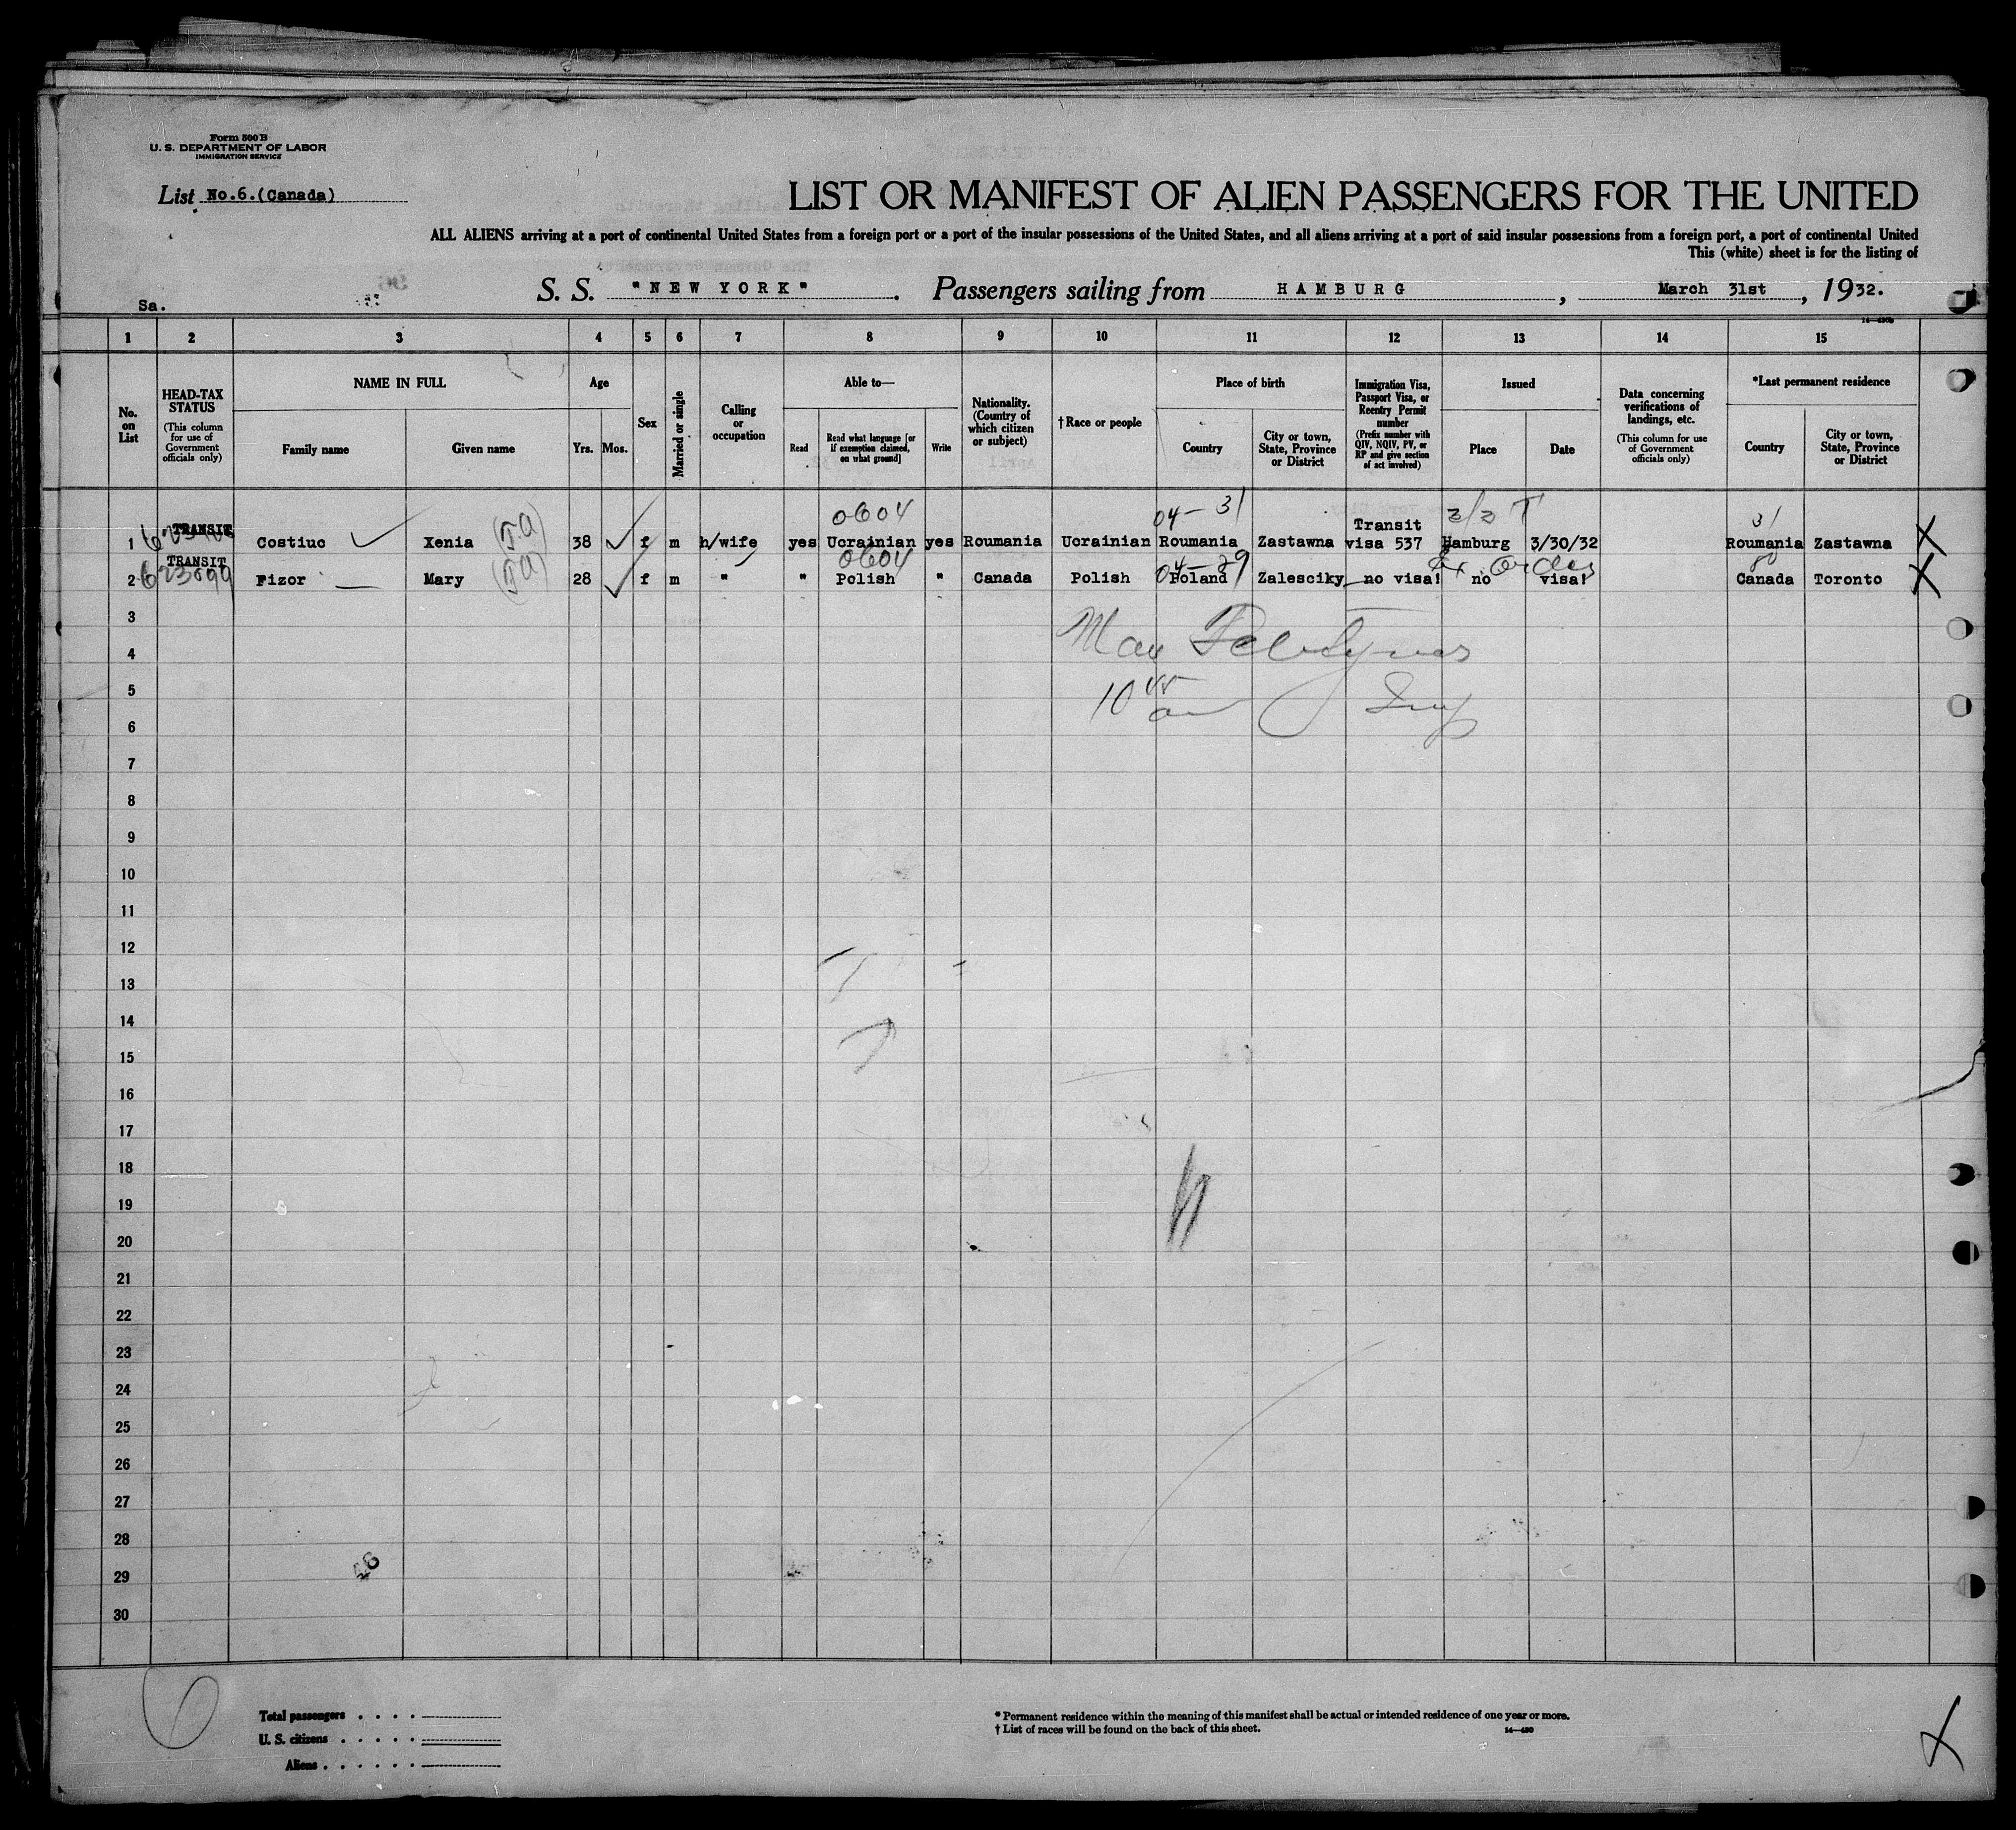 Form 500 B
U. S. DEPARTMENT OF LABOR
IMMIGRATION SERVICE
List No.6.(Canada)
LIST OR MANIFEST OF ALIEN PASSENGERS FOR THE UNITED
ALL ALIENS arriving at a port of continental United States from a foreign port or a port of the insular possessions of the United States, and all aliens arriving at a port of said insular possessions from a foreign port, a port of continental United
This (white) sheet is for the listing of
Sa.
S. S. "NEW YORK". Passengers sailing from HAMBURG, March 31st, 1932.
1 2 3 4 5 6 7 8 9 10 11 12 13 14 15
No. on List
HEAD-TAX STATUS (This column for use of Government officials only)
NAME IN FULL
Family name Given name
Age
Yrs. Mos.
Sex
Married or single
Calling or occupation
Able to—
Read Read what language [or if exemption claimed, on what ground] Write
Nationality. (Country of which citizen or subject)
†Race or people
Place of birth
Country City or town, State, Province or District
Immigration Visa, Passport Visa, or Reentry Permit number (Prefix number with QIV, NQIV, PV, or RP and give section of act involved)
Issued
Place Date
Data concerning verifications of landings, etc. (This column for use of Government officials only)
*Last permanent residence
Country City or town, State, Province or District
0604 04-31 31
1 TRANSIT Costiuc Xenia 38 f m h/wife yes Ucrainian yes Roumania Ucrainian Roumania Zastawna Transit visa 537 Hamburg 3/30/32 Roumania Zastawna X
0604 04-29
2 TRANSIT Fizor Mary 28 f m " " Polish " Canada Polish Poland Zalesciky no visa! no visa! Canada Toronto X
3
4
5
6
7
8
9
10
11
12
13
14
15
16
17
18
19
20
21
22
23
24
25
26
27
28
29
30
Total passengers . . . .
U. S. citizens . . . . .
Aliens . . . . . .
* Permanent residence within the meaning of this manifest shall be actual or intended residence of one year or more.
† List of races will be found on the back of this sheet.
14—430
X